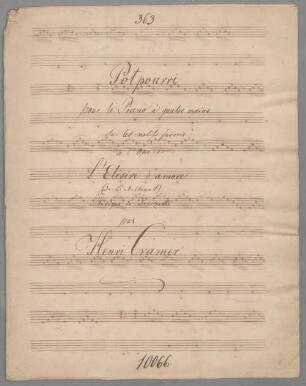 363
Potpourri
pour le Piano à quatre mains
sur les motifs favoris
de l'Opera
L'Elisire d'amore
Musique de Donizetti
par
Henri Cramer
10066